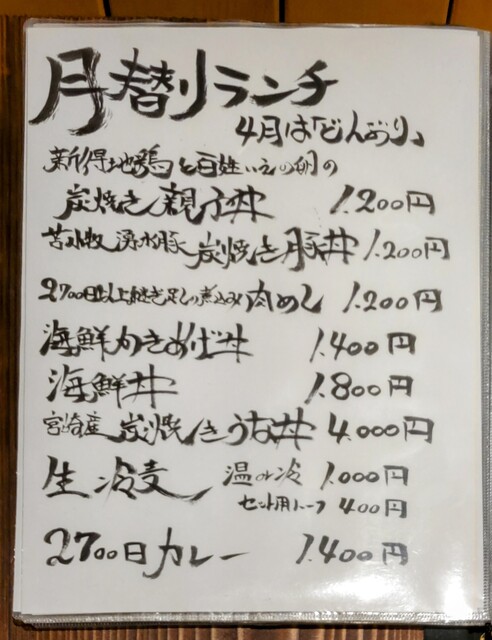 月替りランチ
4月は「どんぶり」
新得地鶏と百姓いえの卵の
炭焼き親子丼 1.200円
苫小牧 湧水豚 炭焼き豚丼 1.200円
2700日以上継ぎ足しの煮込み 肉めし 1.200円
海鮮かきあげ丼 1.400円
海鮮丼 1.800円
宮崎産 炭焼きうな丼 4.000円
生冷麦 温or冷 1.000円
セット用ハーフ 400円
2700日カレー 1.400円